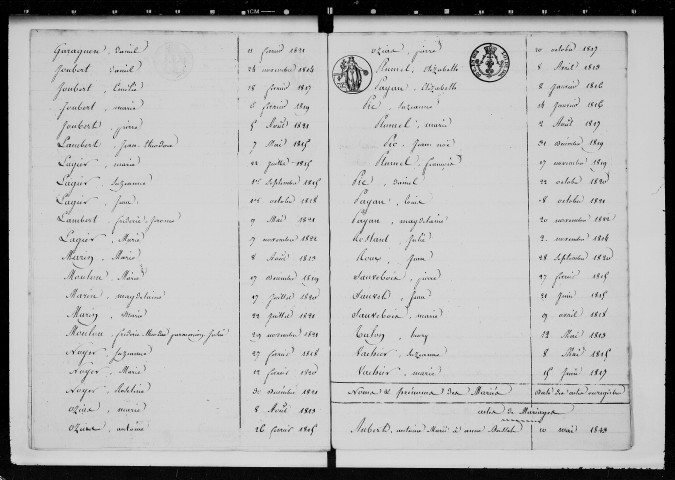 Garagnon, daniel 11 fevrier 1821
Joubert daniel 28 novembre 1816
Joubert, Emilie 18 fevrier 1817
Joubert, marie 6 fevrier 1819
Joubert, pierre 5 Août 1821
Lambert, jean theodore 7 Mai 1815
Lagier, marie 22 juillet 1815
Lagier, Suzanne 1er Septembre 1815
Lagier, jean 1er octobre 1818
Lambert, frederic jerome 9 Mai 1821
Lagier, Marie 7 novembre 1822
Marin, Marie 8 Août 1813
Mouton, Marie 17 decembre 1819
Marin, magdelaine 17 juillet 1820
Marin, marie 22 juillet 1821
Mouton, frederic 29 novembre 1821
Noyer, Suzanne 27 fevrier 1818
Noyer, Marie 12 fevrier 1820
Noyer, 30 decembre 1820
Ozias, marie 8 Août 1813
Ozias, antoine 26 fevrier 1815
Ozias, pierre 20 octobre 1817
Rumel, Elizabeth 8 Avril 1813
Payan, Elizabeth 8 janvier 1816
Pic, Suzanne 14 janvier 1816
Rumel, marie 2 Août 1817
Pic, jean noé 31 decembre 1819
Rumel, françois 17 novembre 1819
Pic, daniel 22 octobre 1820
Payan, Louis 8 octobre 1821
Payan, magdelaine 20 novembre 1822
Rostant, Julie 2 novembre 1816
Roux, jean 28 Septembre 1820
Sauvebois, pierre 27 fevrier 1815
Sauvel, jean 21 juin 1815
Sauvebois, marie 9 avril 1818
Talon, henry 12 Mai 1813
Vachier, Suzanne 8 Mai 1815
Vachier, marie 15 juin 1817
Noms & prénoms des Mariés date des actes enregistrés
actes de Mariages
Aubert, antoine Marie à anne 10 mai 1813